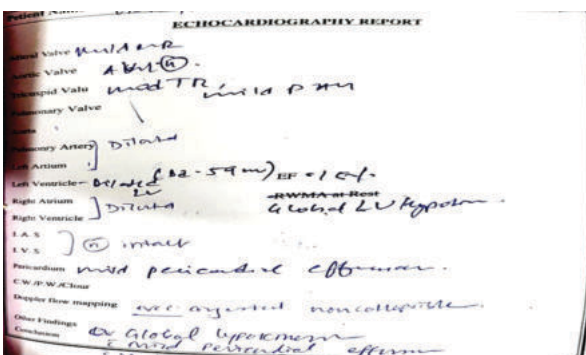 Patient Name
ECHOCARDIOGRAPHY REPORT
Mitral Valve Mild MR
Aortic Valve
Tricuspid Valv mod TR, mild PAH
Pulmonary Valve
Aorta
Pulmonry Artery ] Dilated
Left Artium
Left Ventricle - Dilated LV EF
RWMA at Rest
Right Atrium ] Dilated Global LV Hypokin
Right Ventricle
I.A.S ] (N) intact
I.V.S
Pericardium mild pericardial effusion.
C.W./P.W./Clour
Doppler flow mapping IVC noncollapsible.
Other Findings
Conclusion Global hypokinesia
mild pericardial effusion